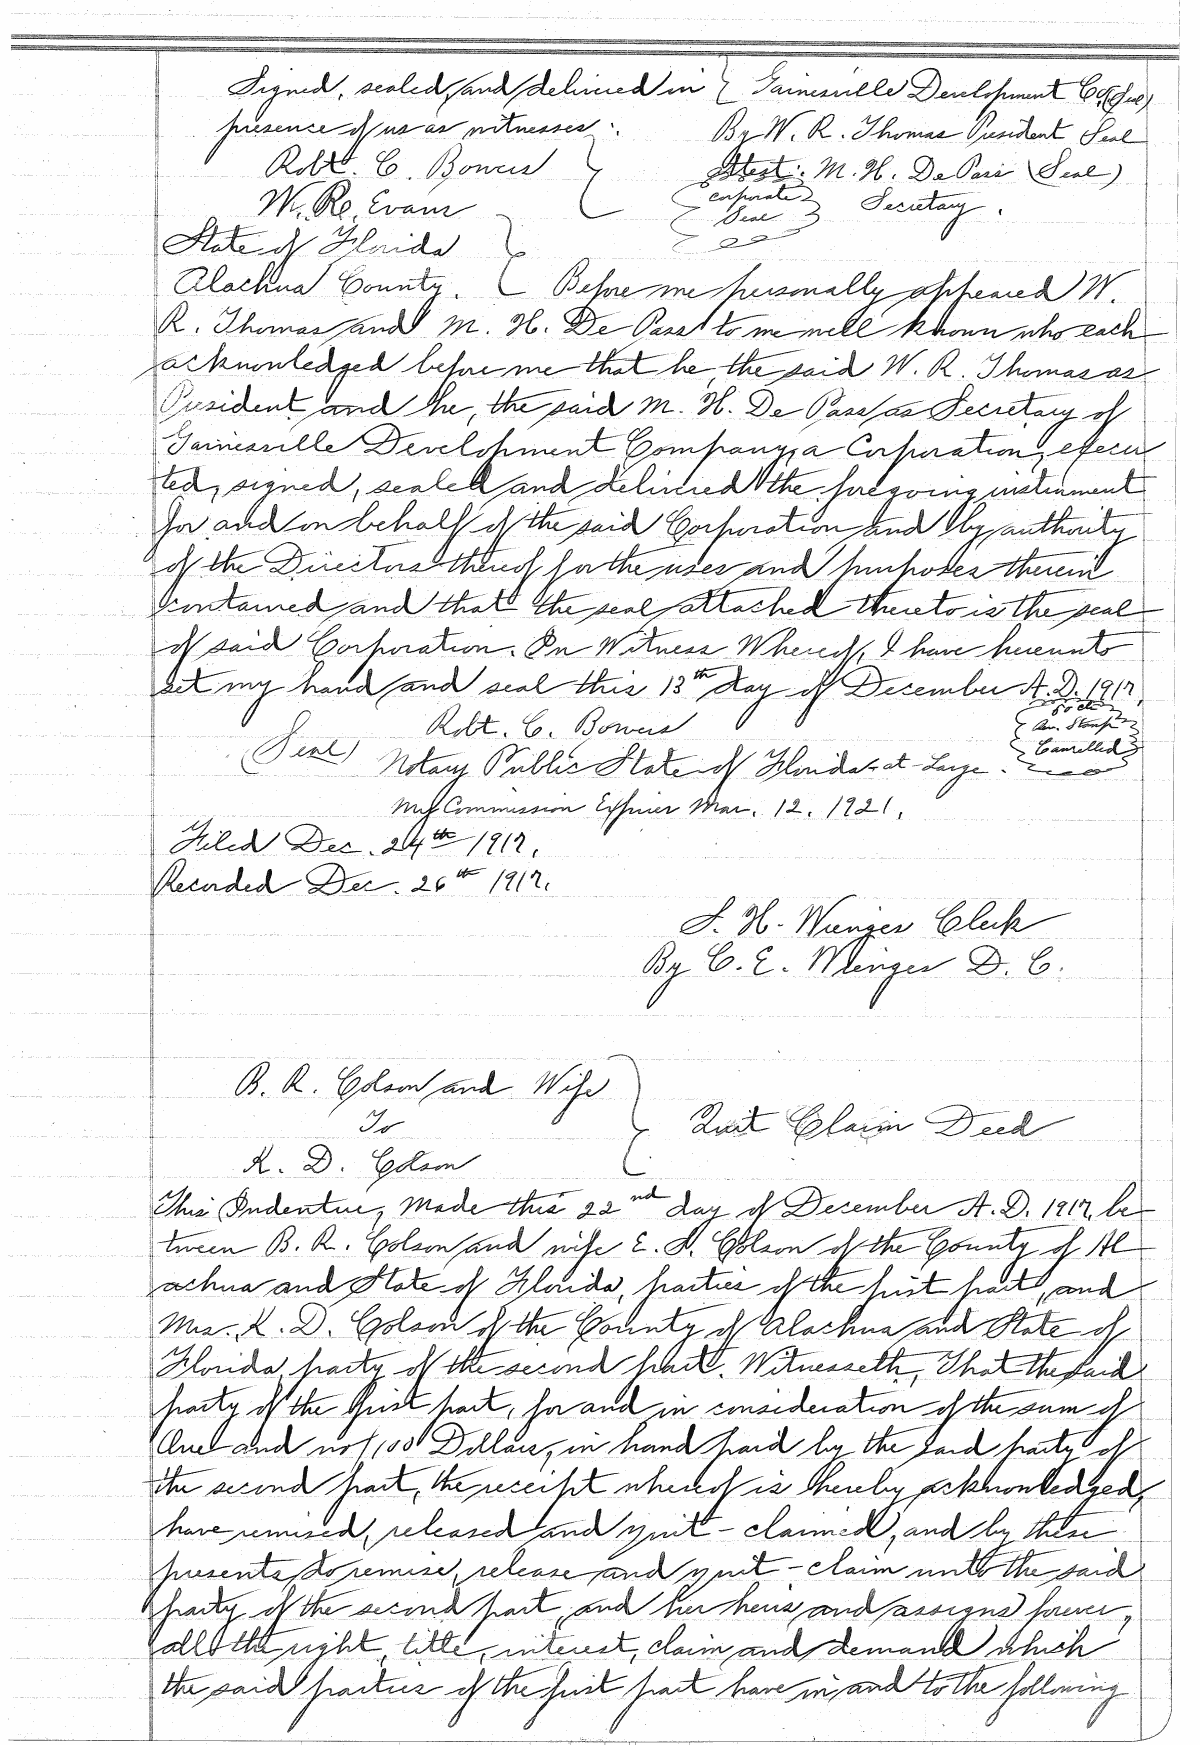 Signed, sealed, and delivered in Gainesville Development Co. (Seal)
presence of us as witnesses: By W. R. Thomas President Seal
Robt. C. Bowers Attest: M. H. De Pass (Seal)
W. R. Evans corporate Seal Secretary.
State of Florida
Alachua County. Before me personally appeared W.
R. Thomas and M. H. De Pass to me well known who each
acknowledged before me that he, the said W. R. Thomas as
President and he, the said M. H. De Pass as Secretary of
Gainesville Development Company, a Corporation, execu
ted, signed, sealed and delivered the foregoing instrument
for and on behalf of the said Corporation and by authority
of the Directors thereof for the uses and purposes therein
contained and that the seal attached thereto is the seal
of said Corporation. In Witness Whereof, I have hereunto
set my hand and seal this 13th day of December A.D. 1917.
Robt. C. Bowers 50 cts Rev. Stamp Cancelled
(Seal) Notary Public State of Florida at Large.
My Commission Expires Mar. 12, 1921.
Filed Dec. 24th 1917.
Recorded Dec. 26th 1917.
S. H. Wienges Clerk
By C. E. Wienges D. C.
B. R. Colson and Wife
To Quit Claim Deed
K. D. Colson
This Indenture, Made this 22nd day of December A.D. 1917, be
tween B. R. Colson and wife E. S. Colson of the County of Al
achua and State of Florida, parties of the first part, and
Mrs. K. D. Colson of the County of Alachua and State of
Florida, party of the second part. Witnesseth, That the said
party of the first part, for and in consideration of the sum of
One and no/100 Dollars, in hand paid by the said party of
the second part, the receipt whereof is hereby acknowledged,
have remised, released and quit-claimed, and by these
presents do remise, release and quit-claim unto the said
party of the second part, and her heirs and assigns forever,
all the right, title, interest, claim and demand which
the said parties of the first part have in and to the following